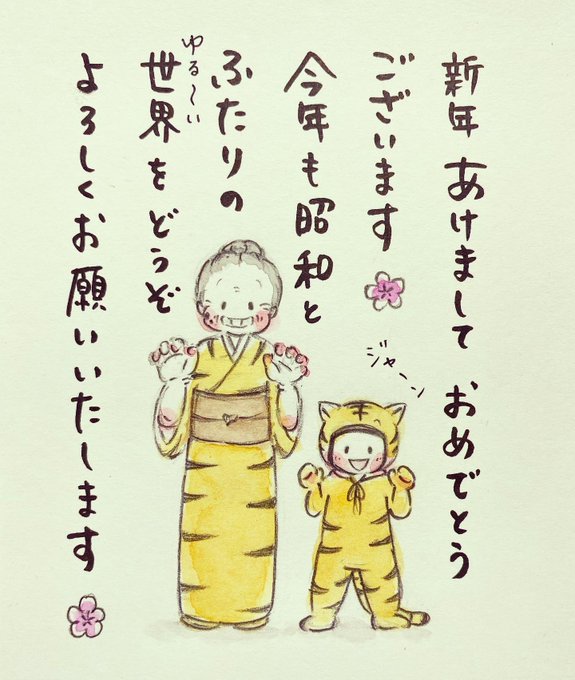 新年 あけまして おめでとう
ございます
今年も昭和と
ふたりの
ゆる〜い
世界をどうぞ
よろしくお願いいたします
ジャーン